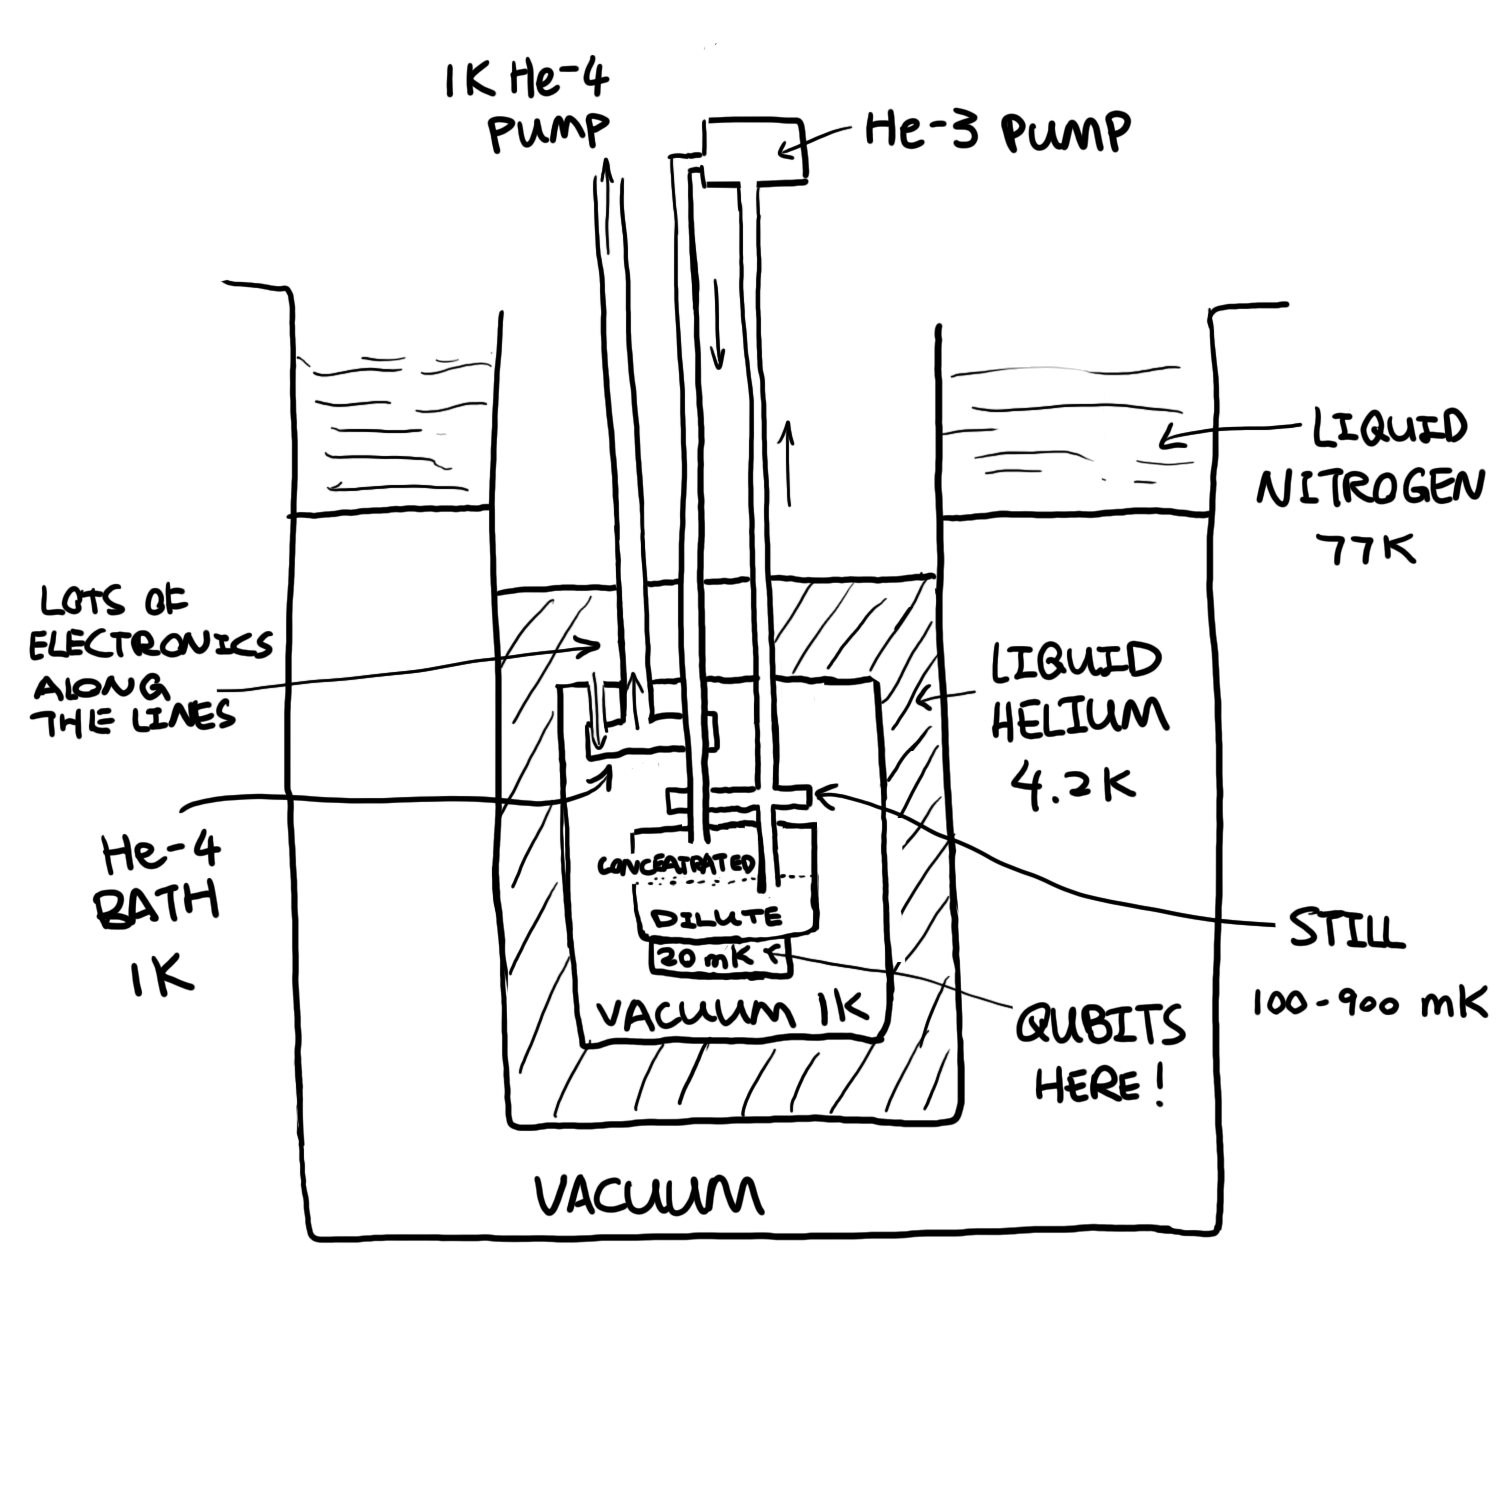 1K He-4
PUMP
He-3 PUMP
LIQUID
NITROGEN
77K
LOTS OF
ELECTRONICS
ALONG
THE LINES
LIQUID
HELIUM
4.2K
He-4
BATH
1K
CONCEATRATED
DILUTE
20 mK
VACUUM 1K
STILL
100-900 mK
QUBITS
HERE!
VACUUM